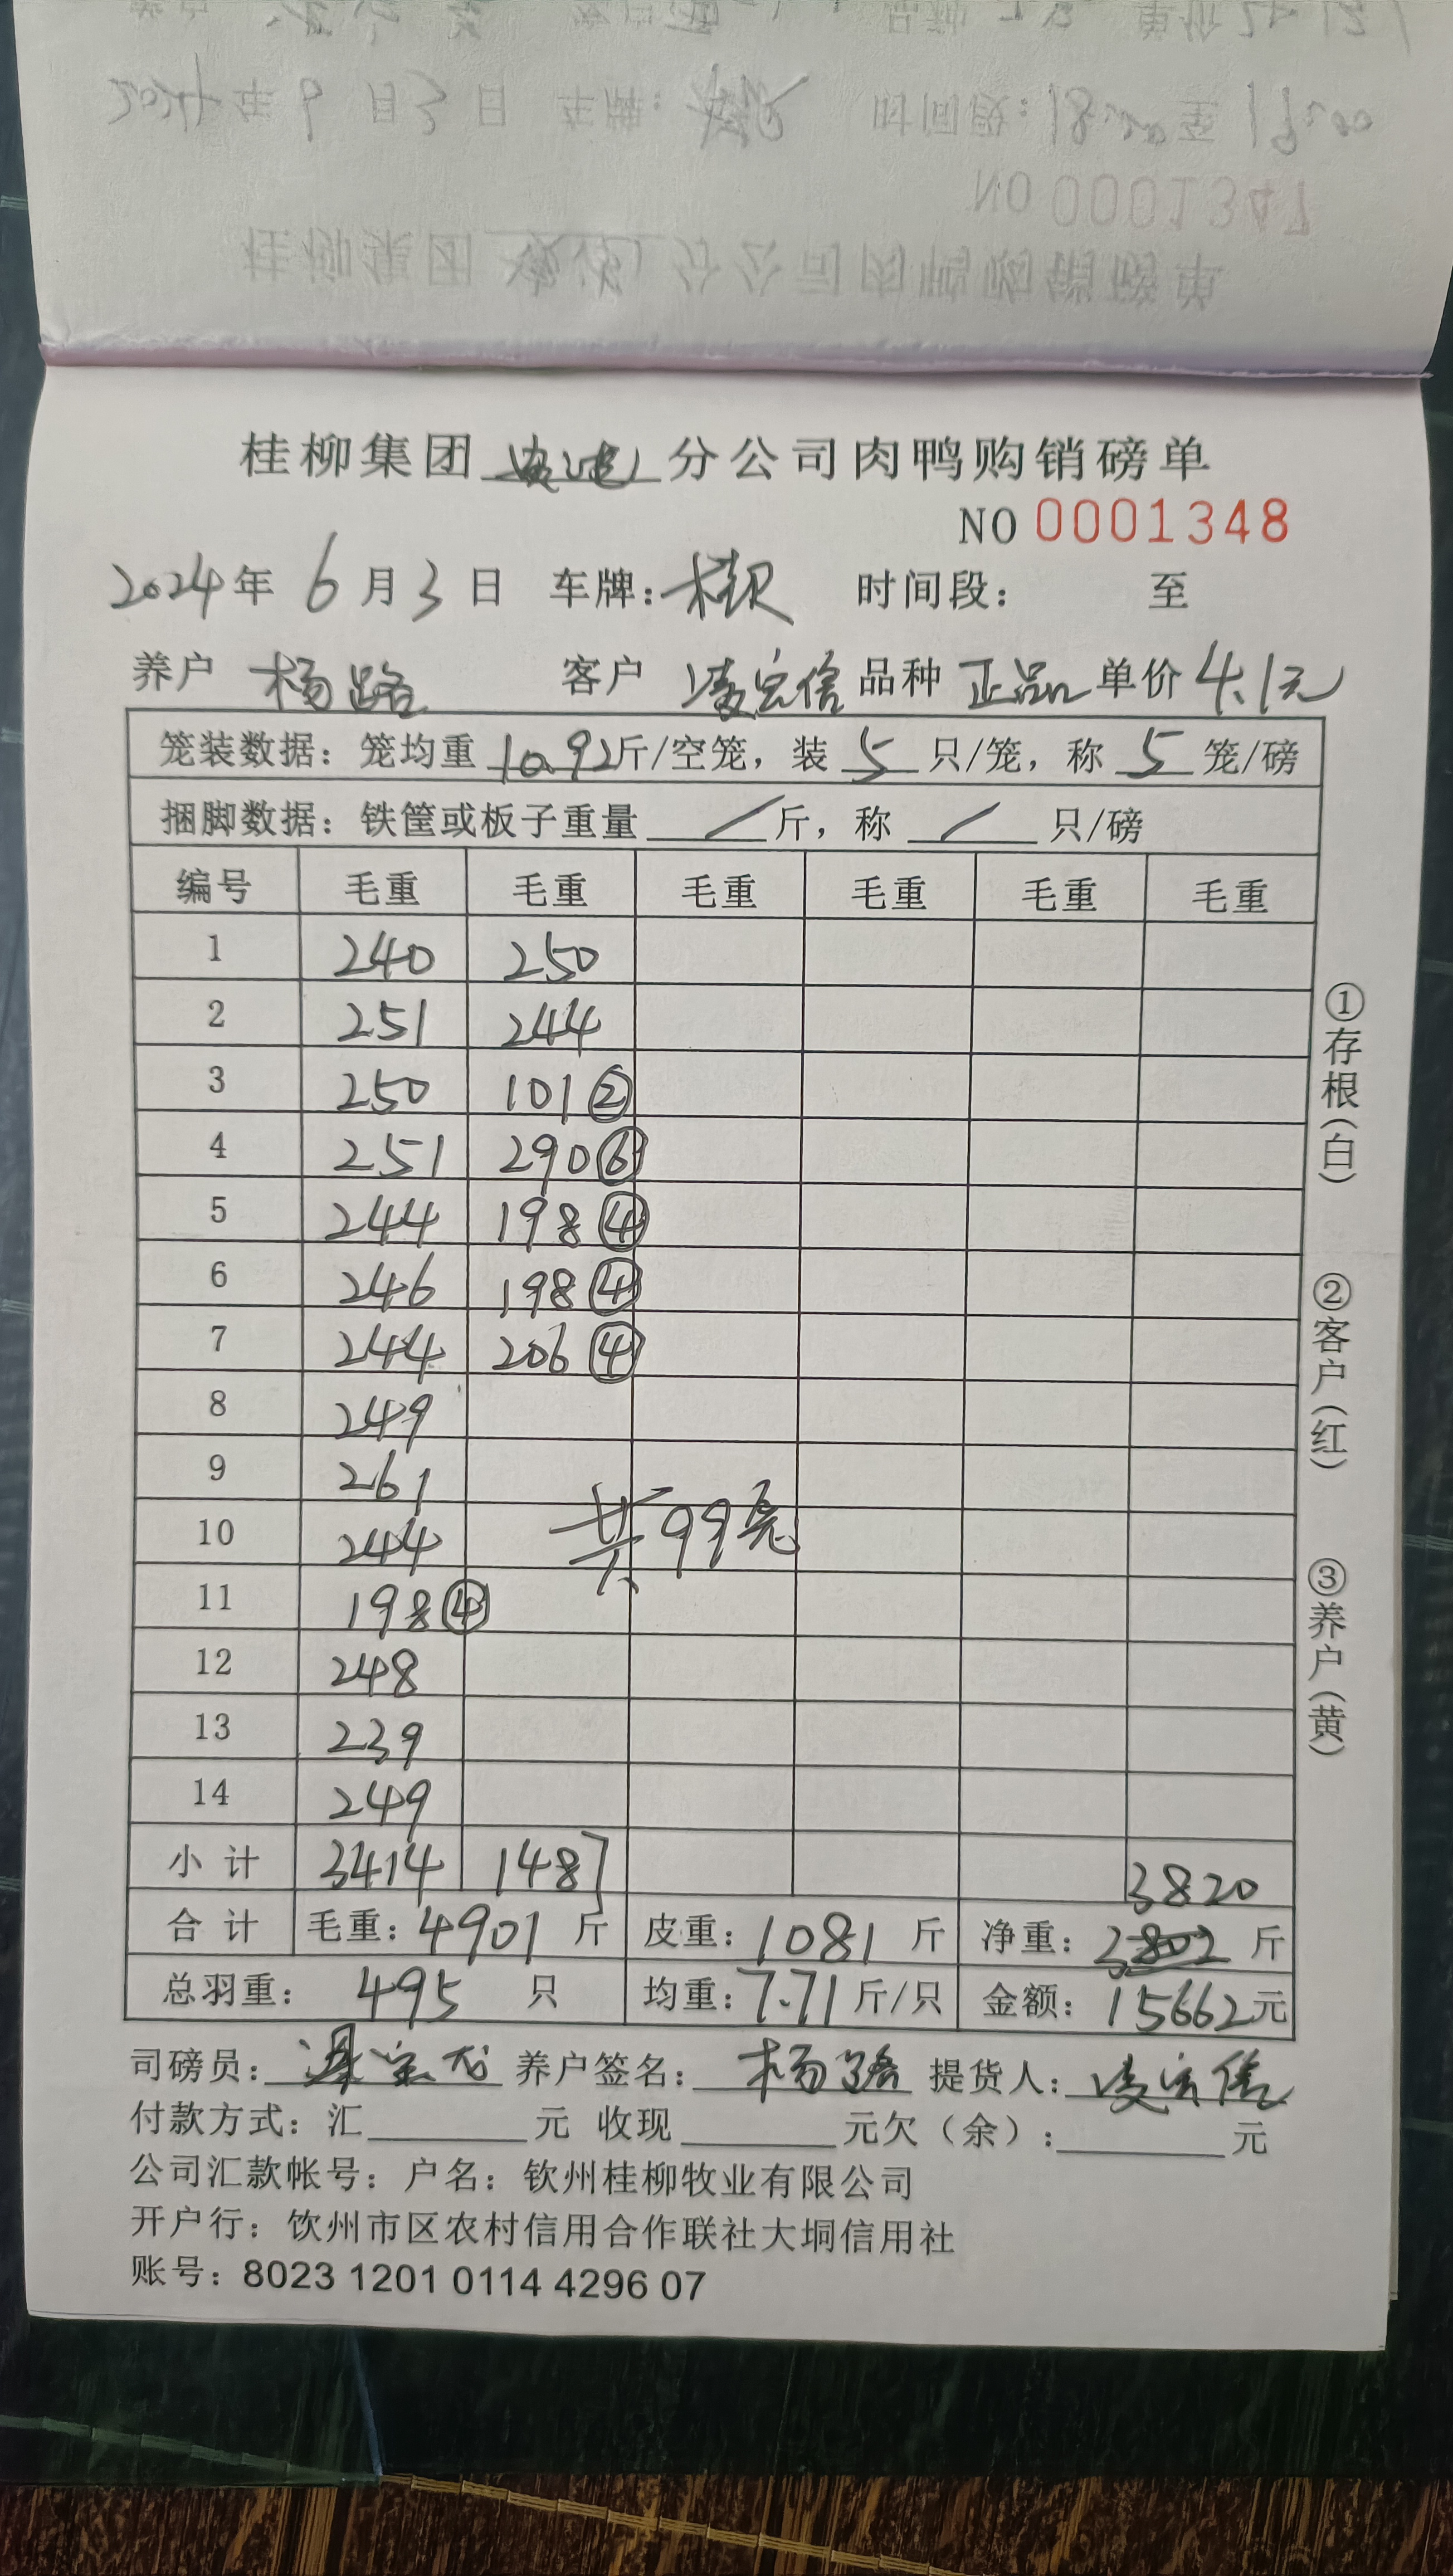 NO 0001347
桂柳集团 分公司肉鸭购销磅单
NO 0001348
2024年 6月3日 车牌: 时间段: 至
养户 杨路 客户 凌宏信 品种 正品 单价 4.1元
笼装数据: 笼均重 10.92斤/空笼, 装 5 只/笼, 称 5 笼/磅
捆脚数据: 铁筐或板子重量 / 斤, 称 / 只/磅
编号 毛重 毛重 毛重 毛重 毛重 毛重
1 240 250
2 251 244
3 250 101②
4 251 290⑥
5 244 198④
6 246 198④
7 244 206④
8 249
9 261
10 244 共99
11 198④
12 248
13 239
14 249
小计 3414 1487
3820
合计 毛重: 4901 斤 皮重: 1081 斤 净重: 3802 斤
总羽重: 495 只 均重: 7.71 斤/只 金额: 15662元
司磅员: 养户签名: 杨路 提货人: 凌宏信
付款方式: 汇 元 收现 元欠(余): 元
公司汇款帐号: 户名: 钦州桂柳牧业有限公司
开户行: 饮州市区农村信用合作联社大垌信用社
账号: 8023 1201 0114 4296 07
①存根(白)
②客户(红)
③养户(黄)